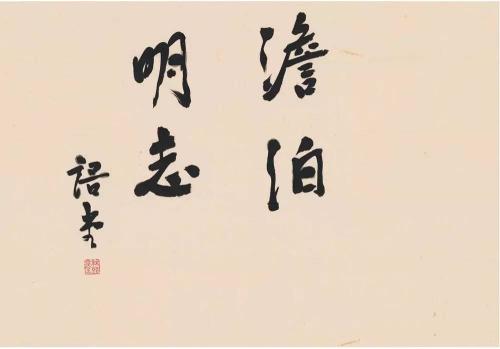 澹泊
明志
語堂